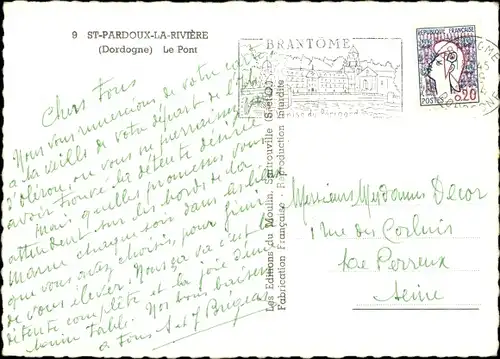 9 ST-PARDOUX-LA-RIVIÈRE
(Dordogne) Le Pont
BRANTÔME
Venise du Périgord
RÉPUBLIQUE FRANÇAISE
POSTES 0,20
Chers Tous
Nous vous remercions de votre carte
à la veille de votre départ de l'île
d'oléron, où vous
avoir trouvé la détente désirée
Mais quelles promesses vous
attendent sur les bords de la
marne chaque soir dans
que vous avez choisis, pour finir
de vous élever. Nous ça va c'est la
détente complète et la joie d'une
bonne table. Nos bons baisers
à Tous S et J
Les Editions du Moulin, Sartrouville (S.-et-O.)
Fabrication Française - Reproduction Interdite
Messieurs Mesdames Decor
1 rue des Corluis
Le Perreux
Seine